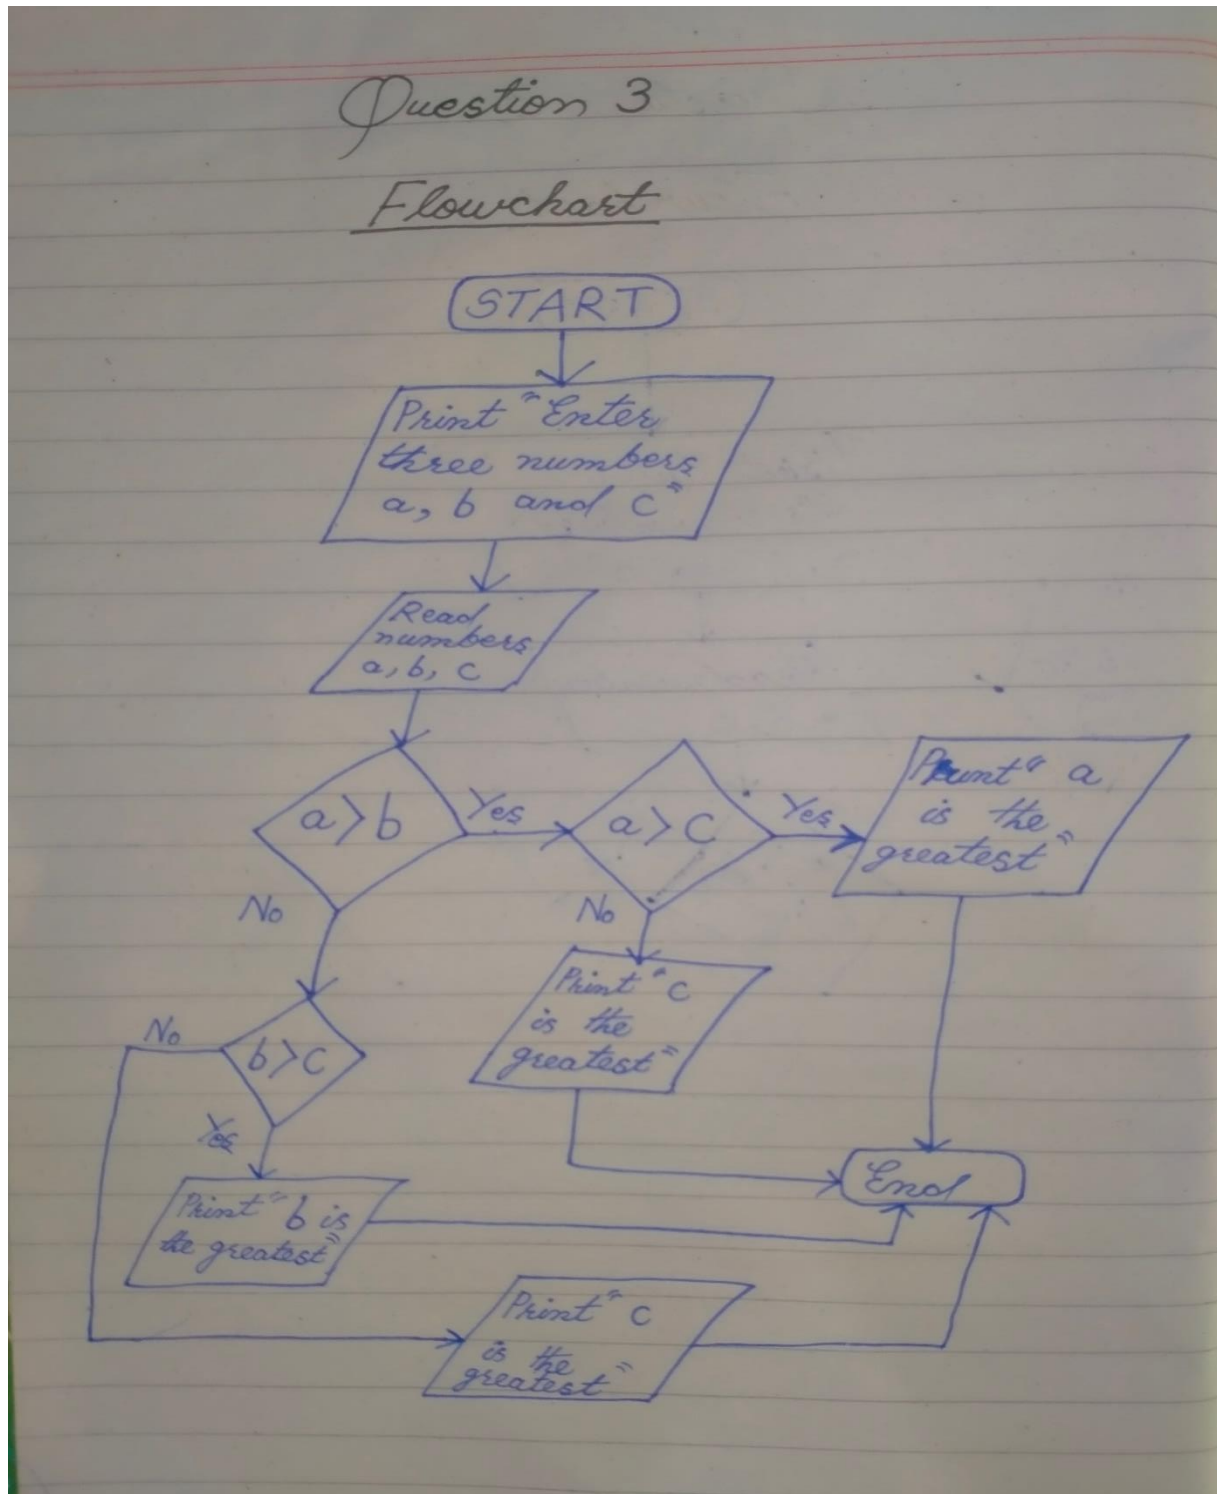 Question 3
Flowchart
START
Print "Enter
three numbers
a, b and c"
Read
numbers
a, b, c
a>b
Yes
a>c
Yes
Print "a
is the
greatest"
No
No
Print "c
is the
greatest"
No
b>c
Yes
End
Print "b is
the greatest"
Print "c
is the
greatest"